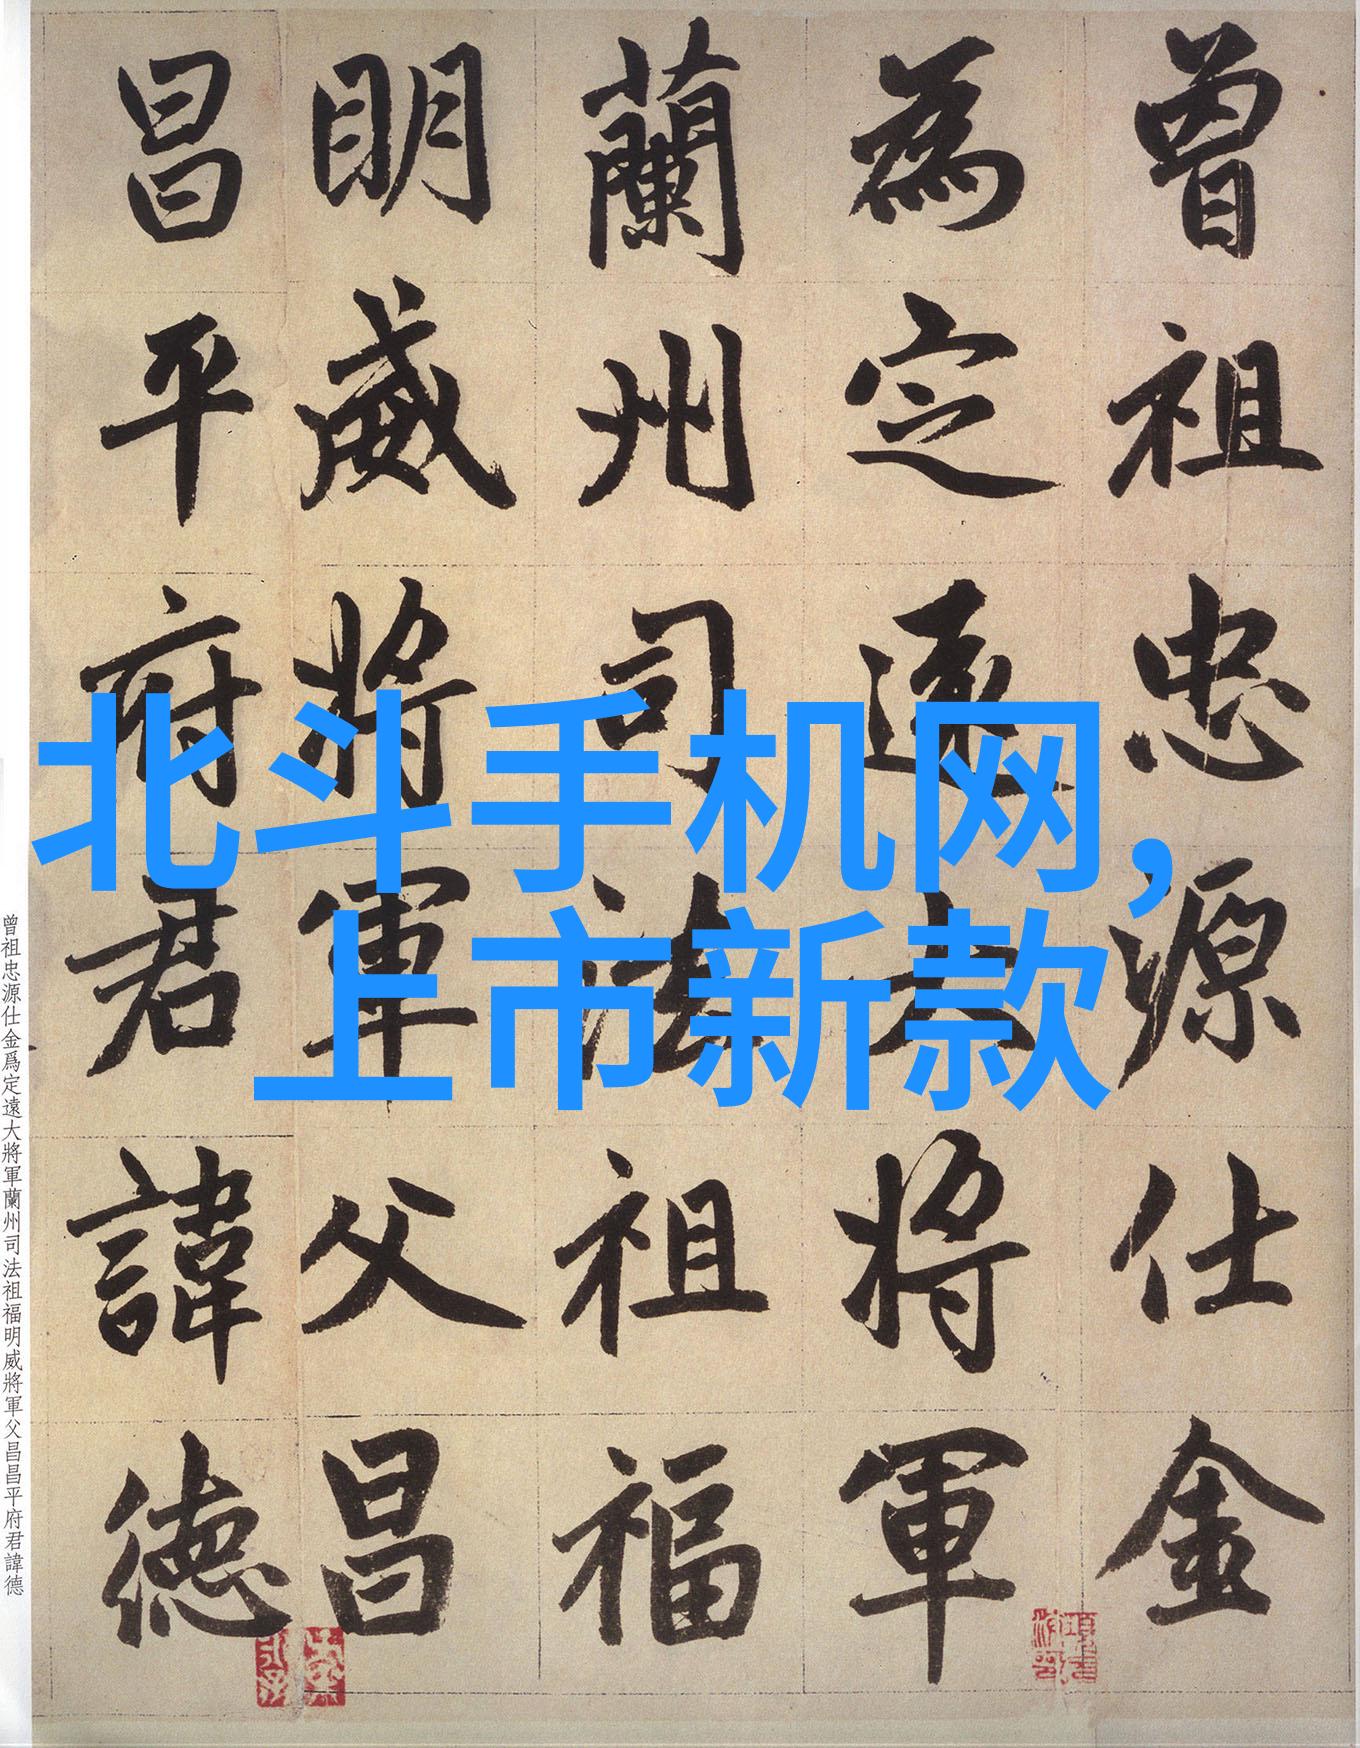 曾祖忠源仕金
為定遠大將軍
蘭州司法祖福
明威將軍父昌
昌平府君諱德
北斗手机网，
上市新款
曾祖忠源仕金爲定遠大將軍蘭州司法祖福明威將軍父昌昌平府君諱德